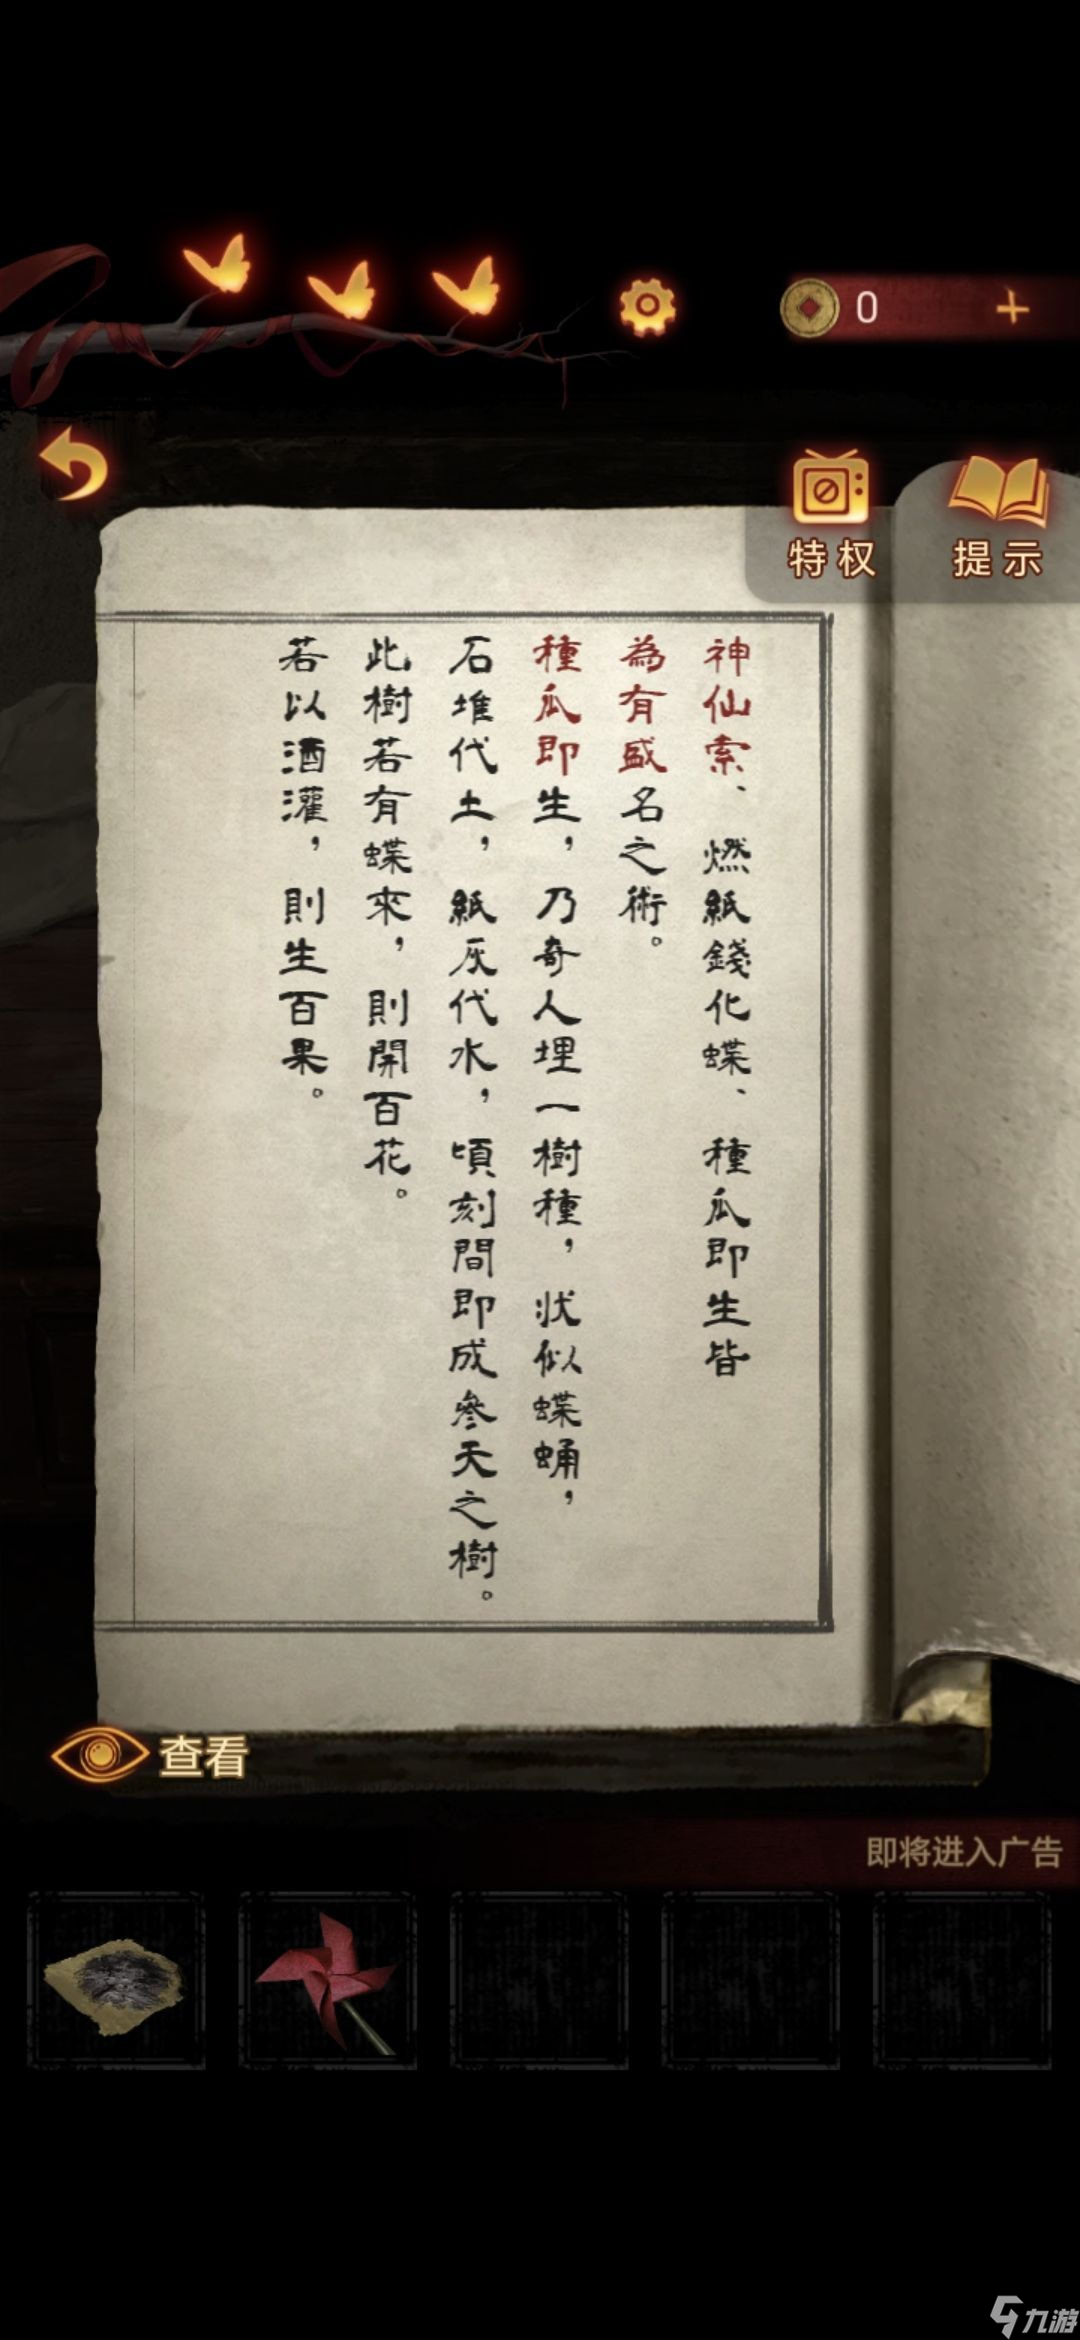 0
特权
提示
神仙索、燃紙錢化蝶、種瓜即生皆
為有盛名之術。
種瓜即生，乃奇人埋一樹種，狀似蝶蛹，
石堆代土，紙灰代水，頃刻間即成參天之樹。
此樹若有蝶來，則開百花。
若以酒灌，則生百果。
查看
即将进入广告
九游